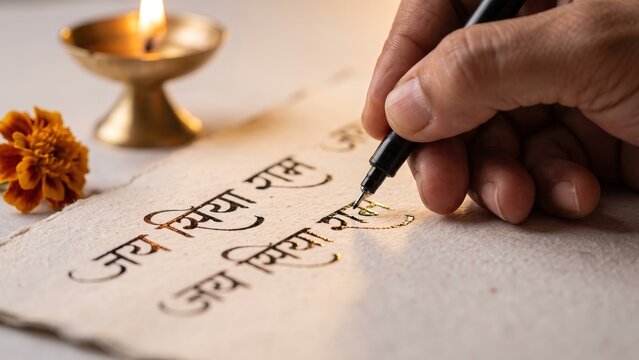 जय सिया राम
जय सिया राम